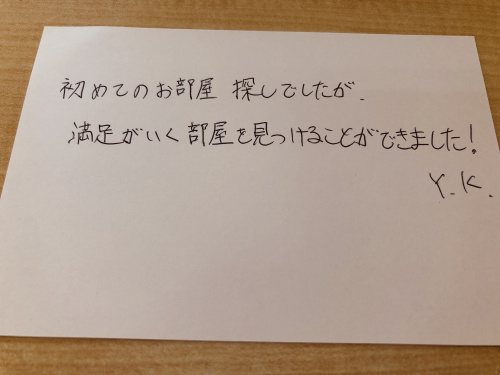 初めてのお部屋 探しでしたが、
満足がいく部屋を見つけることができました!
Y.K.